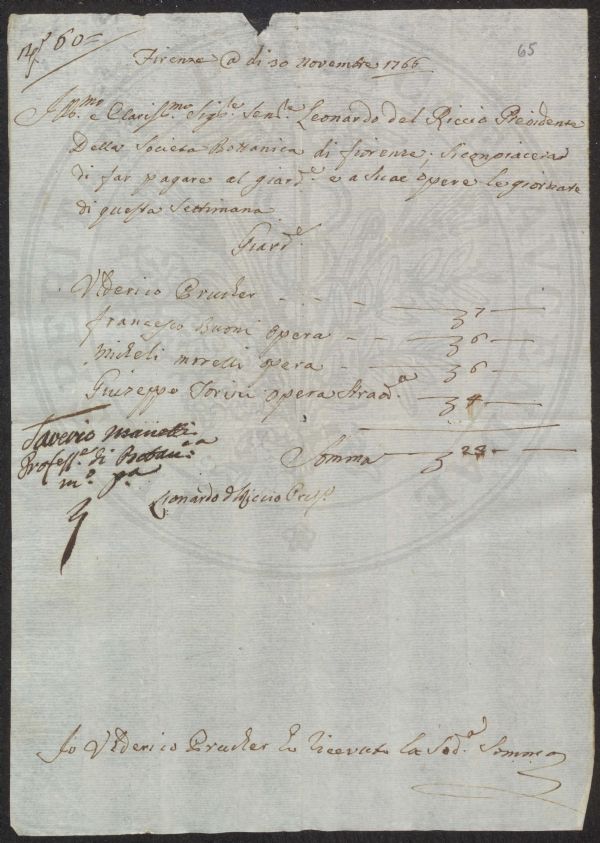 N.º 60=
65
Firenze @ di 30 Novembre 1766
Ill.mo e Clariss.mo Sig.re Sen.re Leonardo del Riccio Presidente
Della Societa Bottanica di fiorenze, si conpiacera
di far pagare al giard.e e a sue opere le giornate
di questa Settimana
Giard.e
Ulderico Prucher - - - 7 -
francesco buoni opera - - 6 -
Micheli morelli opera - 6 -
Giuseppe Torini opera Strad.a 4 -
Saverio Manetti
Profess.e di Botan.ca
m.o p.a
Somma 23 -
Leonardo d Riccio Pres.
Io Ulderico Prucher ho ricevuto la Sod.a Somma